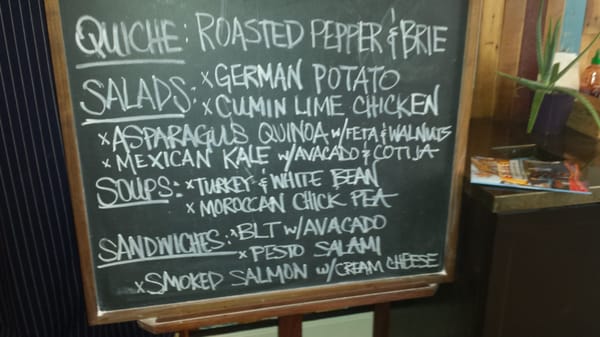 QUICHE: ROASTED PEPPER & BRIE
SALADS: x GERMAN POTATO
x CUMIN LIME CHICKEN
x ASPARAGUS QUINOA w/FETA & WALNUTS
x MEXICAN KALE w/AVACADO & COTIJA
SOUPS: x TURKEY & WHITE BEAN
x MOROCCAN CHICK PEA
SANDWICHES: x BLT w/AVACADO
x PESTO SALAMI
x SMOKED SALMON w/CREAM CHEESE